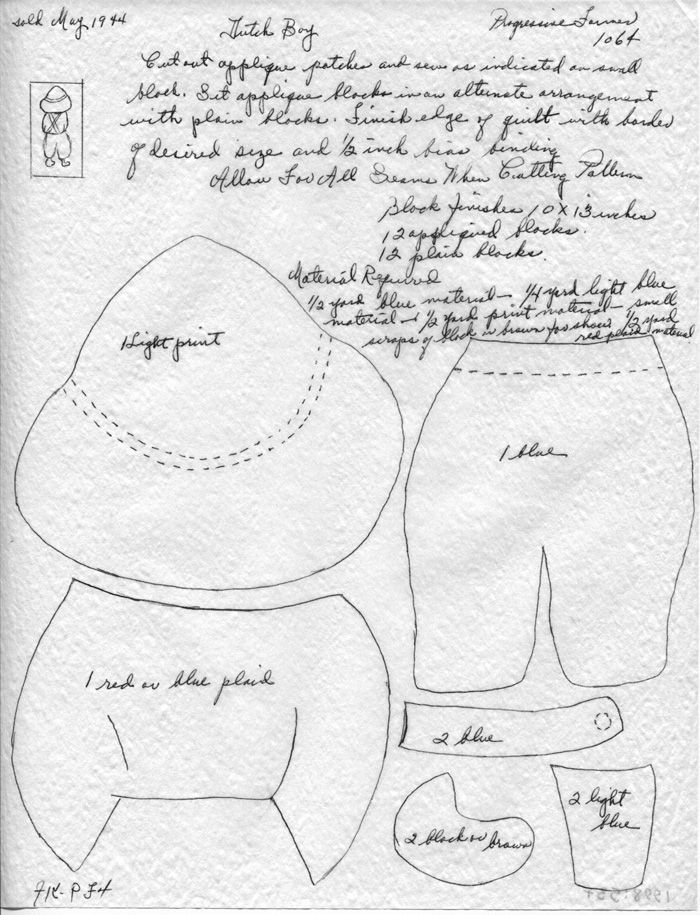 sold May 1944
Dutch Boy
Progressive Farmer
1064
Cut out applique patches and sew as indicated on small
block. Set applique blocks in an alternate arrangement
with plain blocks. Finish edge of quilt with border
of desired size and 1/2 inch bias binding
Allow For All Seams When Cutting Pattern
Block finishes 10 X 13 inches
12 appliqued blocks.
12 plain blocks.
Material Required
1/2 yard blue material - 1/4 yard light blue
material - 1/2 yard print material - small
scraps of black or brown for shoes 1/2 yard
red plaid material
1 light print
1 blue
1 red or blue plaid
2 blue
2 light
blue
2 black or brown
JK-P F4